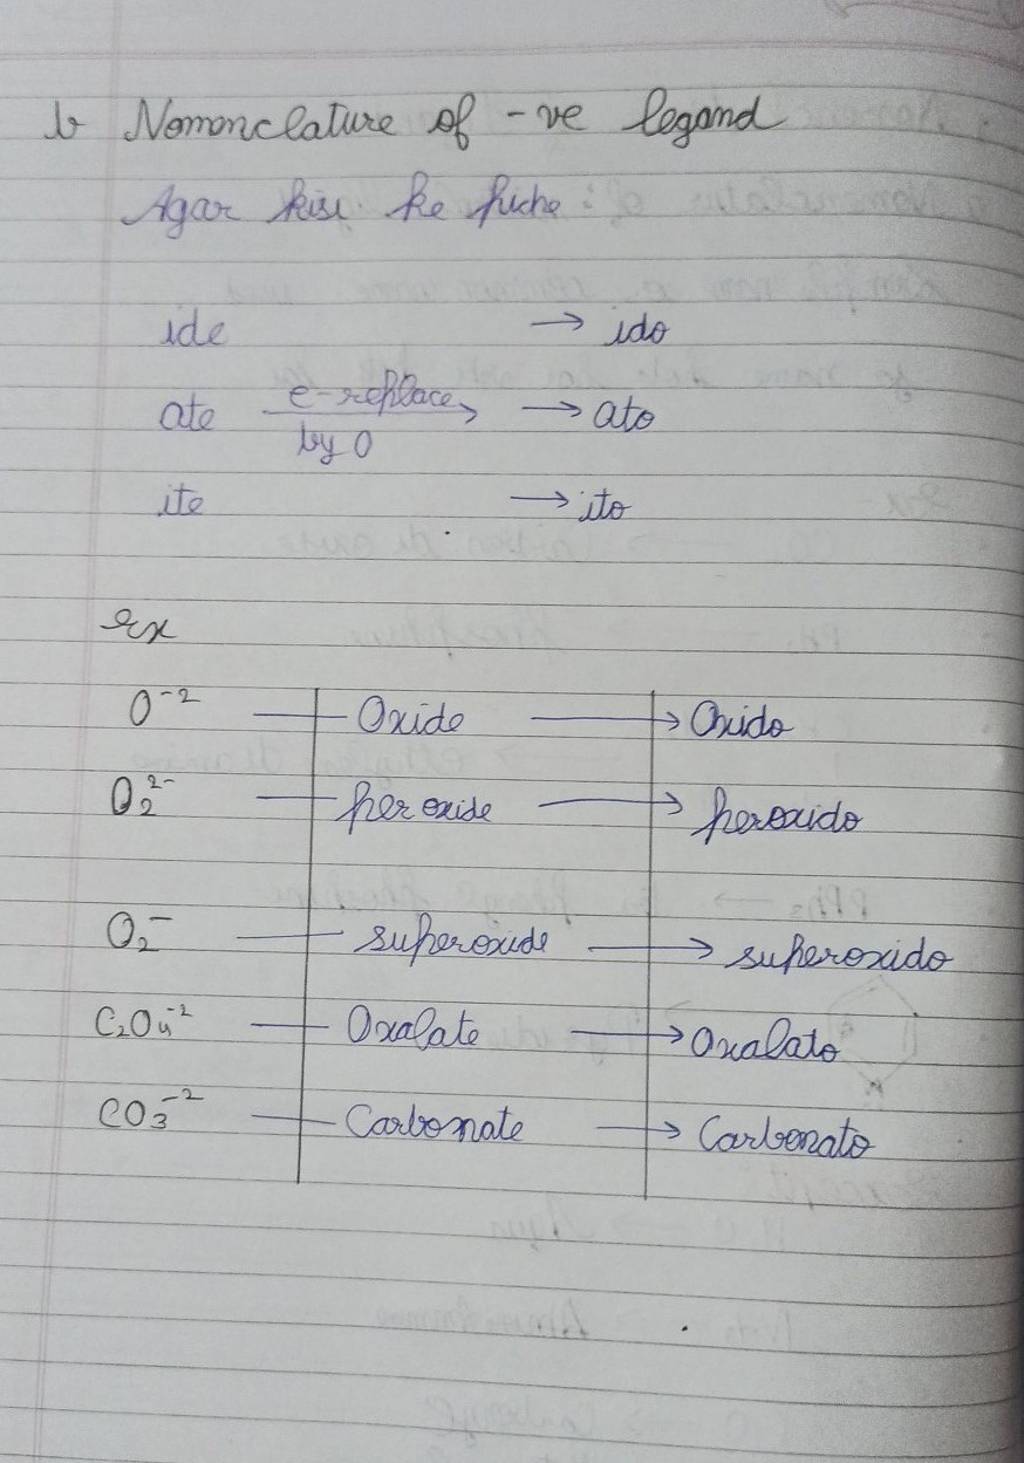 b Nomenclature of -ve legand
Agar kisi ke piche :
ide → ido
ate e-replace by O → ato
ite → ito
ex
O⁻² — Oxide → Oxido
O₂²⁻ — peroxide → peroxido
O₂⁻ — superoxide → superoxido
C₂O₄⁻² — Oxalate → Oxalato
CO₃⁻² — Carbonate → Carbonato